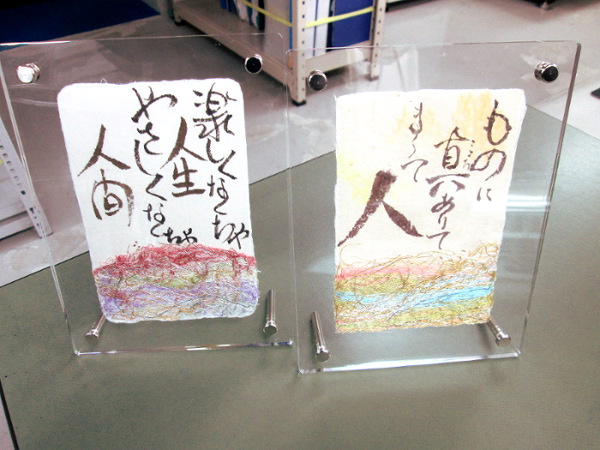 楽しくなくちゃ
人生
やさしくなくちゃ
人間
ものに
真ありて
人